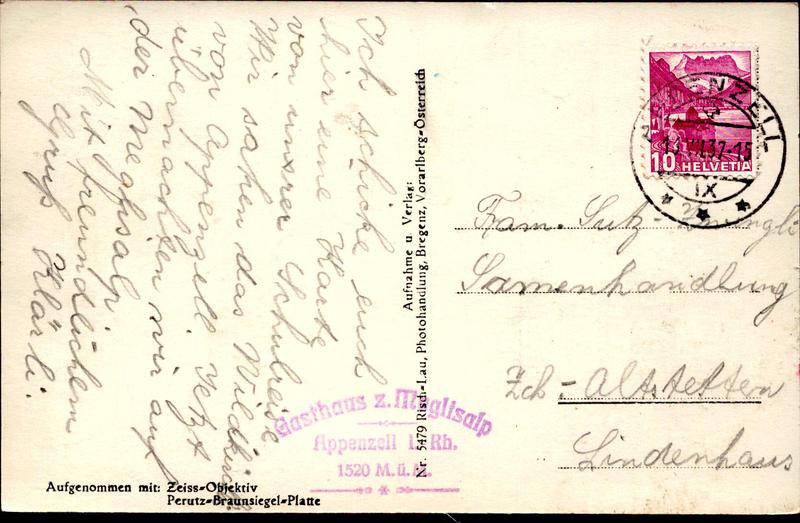 Ich schicke euch
hier eine Karte
von unserer Schulreise
Wir sahen das Wildkirchli
von Appenzell. Jetzt
übernachten wir auf
der Meglisalp
Mit freundlichem
Gruss Klärli.
Aufgenommen mit: Zeiss-Objektiv
Perutz-Braunsiegel-Platte
Gasthaus z. Meglisalp
Appenzell I. Rh.
1520 M.ü.M.
Nr. 5479 Risch-Lau, Photohandlung, Bregenz, Vorarlberg-Österreich
Aufnahme u. Verlag:
APPENZELL
37-15
IX
10 HELVETIA
Fam. Sutz-Zwingli
Samenhandlung
Zch-Altstetten
Lindenhaus